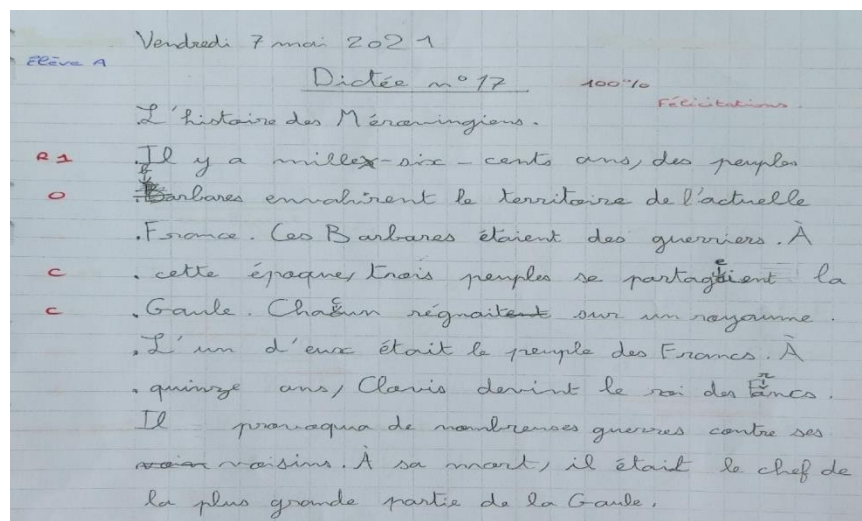 Vendredi 7 mai 2021
Elève A
Dictée n° 17 100%
Félicitations.
L'histoire des Mérovingiens.
R1 .Il y a mille-six-cents ans, des peuples
O .Barbares envahirent le territoire de l'actuelle
.France. Ces Barbares étaient des guerriers. À
C . cette époque, trois peuples se partageaient la
C . Gaule. Chacun régnait sur un royaume.
.L'un d'eux était le peuple des Francs. À
. quinze ans, Clovis devint le roi des Francs.
Il provoqua de nombreuses guerres contre ses
voisins. À sa mort, il était le chef de
la plus grande partie de la Gaule.